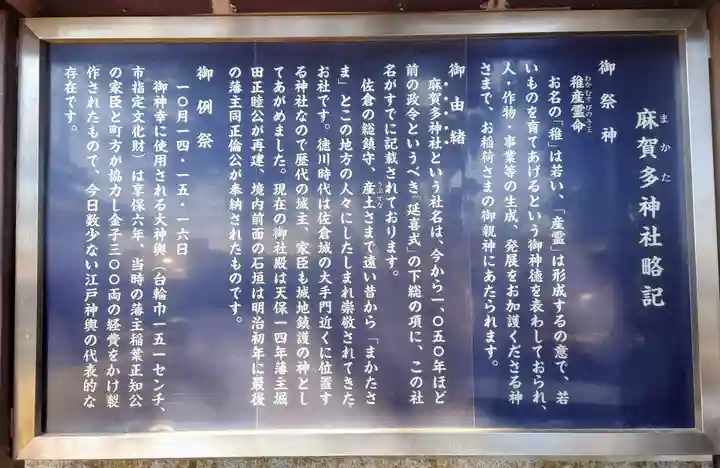 麻賀多神社略記
まかた
御祭神
わかむすびのみこと
稚産霊命
お名の「稚」は若い、「産霊」は形成するの意で、若
いものを育てあげるという御神徳を表わしておられ、
人・作物・事業等の生成、発展をお加護くださる神
さまで、お稲荷さまの御親神にあたられます。
御由緒
麻賀多神社という社名は、今から一、〇五〇年ほど
前の政令というべき「延喜式」の下総の項に、この社
名がすでに記載されております。
佐倉の総鎮守、産土さまで遠い昔から「まかたさ
うぶすな
ま」とこの地方の人々にしたしまれ崇敬されてきた
お社です。徳川時代は佐倉城の大手門近くに位置す
る神社なので歴代の城主、家臣も城地鎮護の神とし
てあがめました。現在の御社殿は天保一四年藩主堀
田正睦公が再建、境内前面の石垣は明治初年に最後
の藩主同正倫公が奉納されたものです。
御例祭
一〇月一四・一五・一六日
御神幸に使用される大神輿（台輪巾一五一センチ、
市指定文化財）は享保六年、当時の藩主稲葉正知公
の家臣と町方が協力し金子三〇〇両の経費をかけ製
作されたもので、今日数少ない江戸神輿の代表的な
存在です。